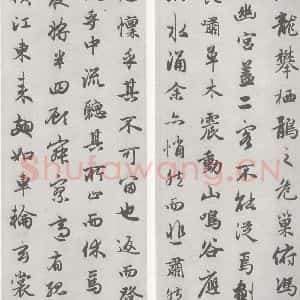 龍攀栖鶻之危巢俯馮
幽宮蓋二客不能從焉劃
嘯草木震動山鳴谷應
水涌余亦悄然而悲肅
懍乎其不可留也返而登
乎中流聽其所止而休焉
夜將半四顧寂寥適有孤
江東来翅如車輪玄裳
Shufawang.CN